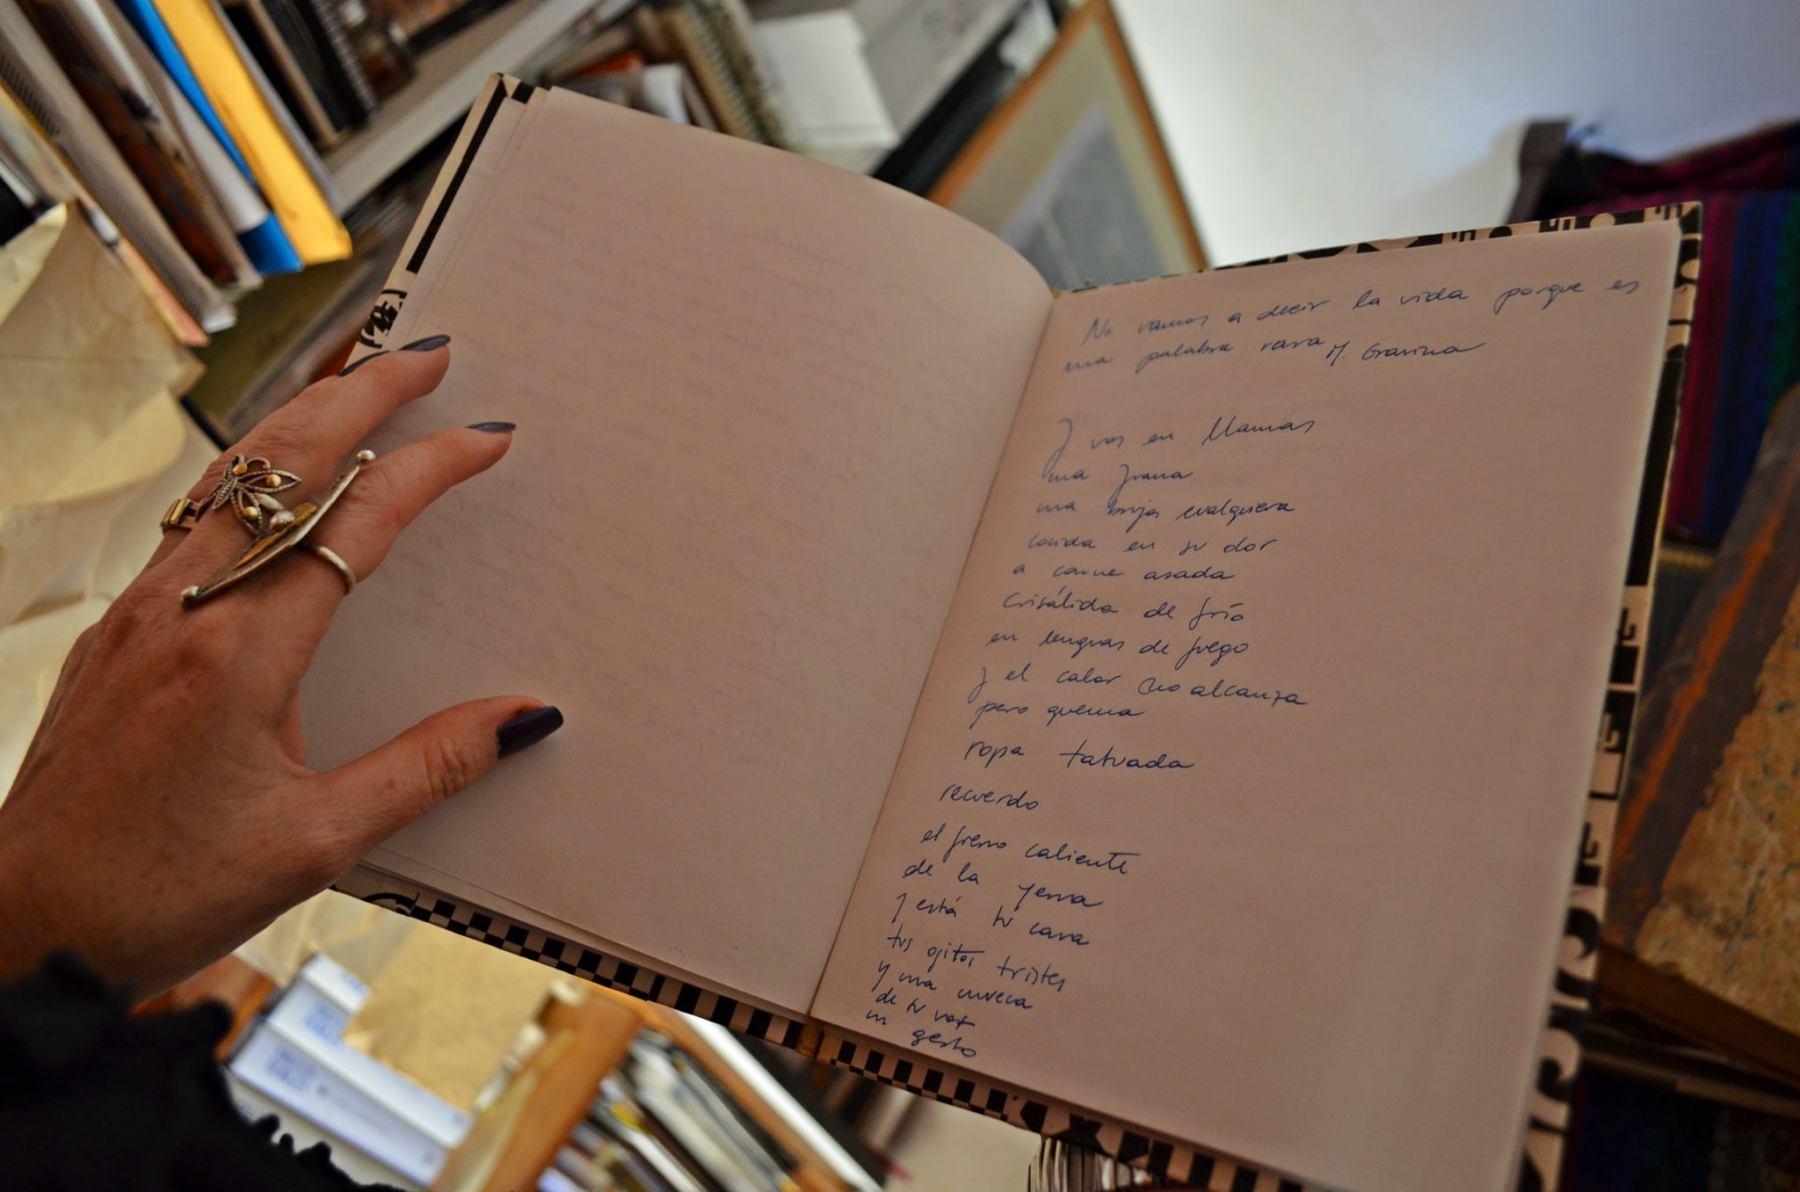 No vamos a decir la vida porque es
una palabra rara M. Gravina
Y vos en llamas
una Juana
una bruja cualquiera
cocida en su olor
a carne asada
crisálida de frío
en lenguas de fuego
y el calor no alcanza
pero quema
ropa tatuada
recuerdo
el fierro caliente
de la yerra
y está tu cara
tus ojitos tristes
y una mueca
de tu voz
un gesto